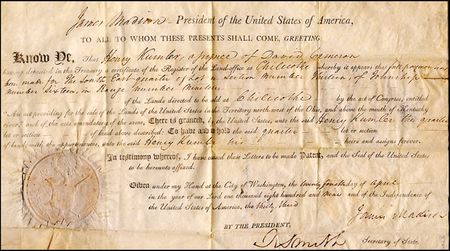 James Madison, President of the United States of America,
TO ALL TO WHOM THESE PRESENTS SHALL COME, GREETING.
Know Ye, That Henry Kumler assignee of David Cameron
having deposited in the Treasury a certificate of the Register of the Land-office at Chilicothe whereby it appears that full payment has
been made for the East quarter of lot or Section number of Township
number Sixteen, in Range number
of the Lands directed to be sold at Chilicothe by the act of Congress, entitled
"An act providing for the sale of the Lands of the United States in the Territory north-west of the Ohio, and above the mouth of Kentucky
river," and of the acts amendatory of the same, There is granted, by the United States, unto the said Henry Kumler the quarter
lot or section of land above described: To have and to hold the said quarter lot or section
of land, with the appurtenances, unto the said Henry Kumler his heirs and assigns forever.
In testimony whereof, I have caused these Letters to be made Patent, and the Seal of the United States
to be hereunto affixed.
Given under my Hand at the City of Washington, the day of April
in the year of our Lord one thousand eight hundred and and of the Independence of the
United States of America, the thirty third
James Madison
BY THE PRESIDENT,
R Smith Secretary of State.